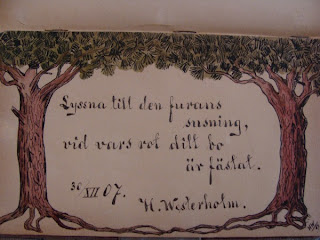 Lyssna till den furans
susning,
vid vars rot ditt bo
är fästat.
30 XII 07.
V. Westerholm.